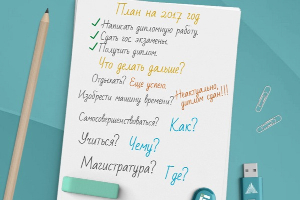 План на 2017 год
Написать дипломную работу.
Сдать гос. экзамены.
Получить диплом.
Что делать дальше?
Отдыхать? Еще успею.
Изобрести машину времени? Неактуально, диплом сдан!!!
Самосовершенствоваться? Как?
Учиться? Чему?
Магистратура? Где?